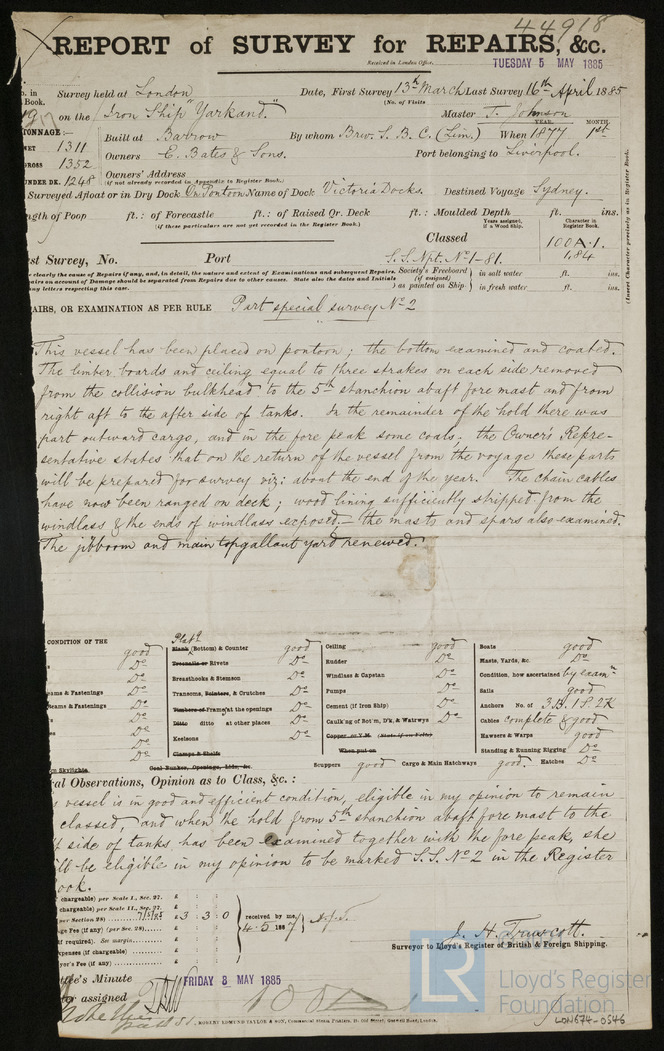 44918
REPORT of SURVEY for REPAIRS, &c.
Received in London Office, TUESDAY 5 MAY 1885
Survey held at London Date, First Survey 13th March Last Survey 16th April 1885
Book. (No. of Visits
on the Iron Ship "Yarkand." Master T. Johnson
TONNAGE:— YEAR. MONTH.
1311 Built at Barrow By whom Brw. S. B. C. (Lim.) When 1877 1st
GROSS 1352 Owners E. Bates & Sons. Port belonging to Liverpool.
UNDER DK. 1248 Owners' Address
(if not already recorded in Appendix to Register Book.)
Surveyed Afloat or in Dry Dock On Pontoon Name of Dock Victoria Docks. Destined Voyage Sydney.
ngth of Poop ft.: of Forecastle ft.: of Raised Qr. Deck ft.: Moulded Depth ft. ins.
(if these particulars are not yet recorded in the Register Book.) Years assigned, if a Wood Ship. Character in Register Book.
Classed 100A.1.
st Survey, No. Port S.S. Npt. No 1-81. 1.84
(Insert Character precisely as in Register Book.)
clearly the cause of Repairs if any, and, in detail, the nature and extent of Examinations and subsequent Repairs. Society's Freeboard in salt water ft. ins.
airs on account of Damage should be separated from Repairs due to other causes. State also the dates and Initials (if assigned)
ny letters respecting this case. as painted on Ship in fresh water ft. ins.
AIRS, OR EXAMINATION AS PER RULE Part special survey No 2
This vessel has been placed on pontoon; the bottom examined and coated.
The limber boards and ceiling equal to three strakes on each side removed
from the collision bulkhead to the 5th stanchion abaft fore mast and from
right aft to the after side of tanks. In the remainder of the hold there was
part outward cargo, and in the fore peak some coals; the Owner's Repre-
sentative states that on the return of the vessel from the voyage these parts
will be prepared for survey viz: about the end of the year. The chain cables
have now been ranged on deck; wood lining sufficiently stripped from the
windlass & the ends of windlass exposed,— the masts and spars also examined.
The jibboom and main topgallant yard renewed.
CONDITION OF THE
good Plank (Bottom) & Counter good Ceiling good Boats good
Do Treenails or Rivets Do Rudder Do Masts, Yards, &c. Do
Do Breasthooks & Stemson Do Windlass & Capstan Do Condition, how ascertained by examn
eams & Fastenings Do Transoms, Pointers, & Crutches Do Pumps Do Sails good
Beams & Fastenings Do Timbers or Frames at the openings Do Cement (if Iron Ship) Do Anchors No. of 3B. 1S. 2K
Do Ditto ditto at other places Do Caulk'ng of Bot'm, D'k, & Watrwys Do Cables complete & good
Do Keelsons Do Copper or Y.M. (State if on Felt) Hawsers & Warps good
Do Clamps & Shelfs When put on Standing & Running Rigging Do
Skylights Coal Bunker, Openings, Lids, &c. Scuppers good Cargo & Main Hatchways good. Hatches Do
al Observations, Opinion as to Class, &c.:
vessel is in good and efficient condition, eligible in my opinion to remain
classed, and when the hold from 5th stanchion abaft fore mast to the
side of tanks has been examined together with the fore peak, she
ill be eligible in my opinion to be marked S.S. No 2 in the Register
ook.
chargeable) per Scale I., Sec. 27. £ : :
chargeable) per Scale II., Sec. 27. £ : :
per Section 28) 7/5/85 £ 3 : 3 : 0 received by me,
ge Fee (if any) (per Sec. 28) £
if required). See margin. £
xpenses (if chargeable) £
yor's Fee (if any) £
J. H. Truscott.
Surveyor to Lloyd's Register of British & Foreign Shipping.
tee's Minute FRIDAY 8 MAY 1885
assigned 100A1
ROBERT EDMUND TAYLOR & SON, Commercial Steam Printers, 19, Old Street, Goswell Road, London.
LR Lloyd's Register Foundation
LON674-0546